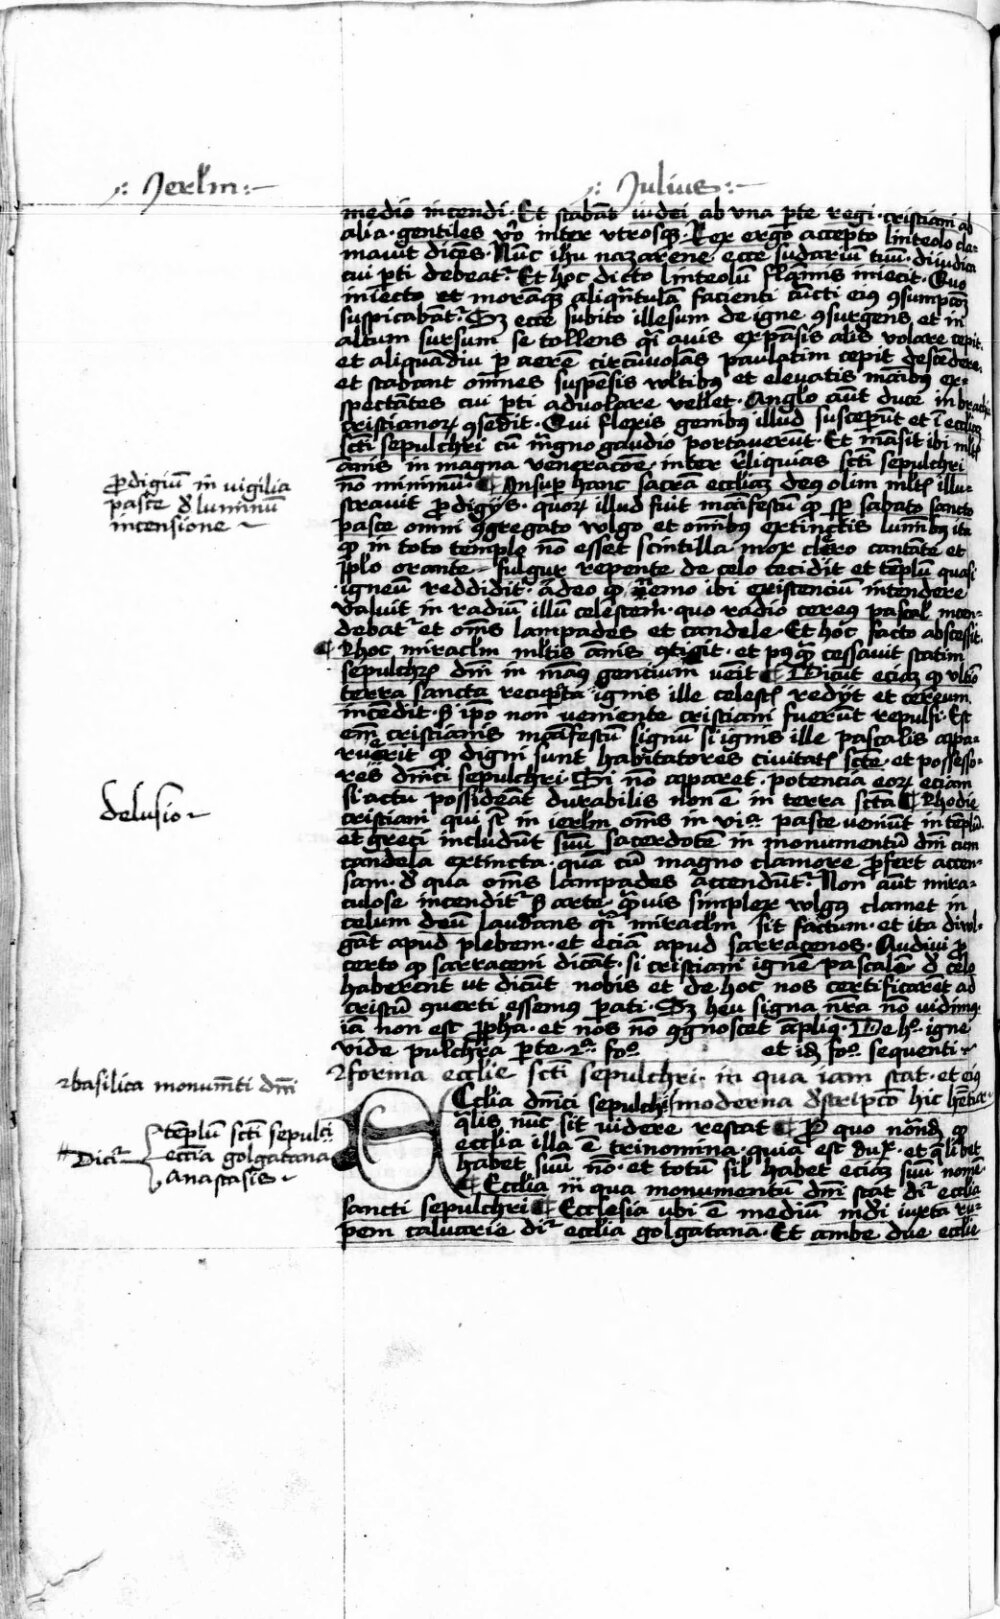 Jerlm
Julius
medio incendi. Et stabāt iudei ab vna pte regi. cristiani ab
alia. gentiles vo inter vtrosq;. Rex ergo accepto linteolo cla-
mauit dicēs. Nūc ihu nazarene. ecce sudariū tuū. diiudica
cui pti debeat. Et hoc dicto linteolū flāmis iniecit. Quo
iniecto et moramq; aliqntulā facienti cūcti eius ꝯsumpcōz
suspicabāt. Sz ecce subito illesum de igne ꝯsurgens. et in
altum sursum se tollens qi auis expāsis alis volare cepit.
et aliquādiu p aerē circūuolās paulatim cepit descēdere.
et stabant omnes suspēsis vultibꝰ et eleuatis māibꝰ ex-
spectātes cui pti aduolare vellet. Anglo aūt duce in brachijs
cristianoꝝ ꝯsedit. Qui flexis genibꝰ illud susceperūt et ī eccliaz
scti sepulchri cū mgno gaudio portauerūt. Et māsit ibi mltis
ānis in magna veneracōe. inter reliquias scti sepulchri
nō minimū. ¶ Insup hanc sacrā eccliaz deꝰ olim mltis illu-
strauit pdigijs. quoꝝ illud fuit māifestū ꝙ sp sabato sancto
pasce omni ꝯgregato volgo et omibꝰ extinctis lumībꝰ ita
ꝙ in toto templo nō esset scintilla. mox clero cantāte et
pplo orante. fulgur repente de celo cecidit et tēplū quasi
igneū reddidit. adeo ꝙ nemo ibi existenciū intendere
valuit in radiū illū celestem. quo radio cereꝰ pascal incen-
debat et oms lampades et candele. Et hoc facto abscessit.
¶ Rhoc miraclm mltis ānis ꝯtigit. et pꝰqꝫ cessauit statim
sepulchꝝ dni in manꝰ gencium venit ¶ Dicūt eciaz ꝙ vltīo
terra sancta recupata ignis ille celestꝭ redijt et cereum
incēdit. ꝫ ipo non veniente cristiani fuerūt repulsi. Est
em cristianis māifestū signū si ignis ille pascalis appa-
ruerit ꝙ digni sunt habitatores ciuitatꝭ scte. et possesso-
res dnici sepulchri. Si nō apparet. potencia eoꝝ eciam
si actu possideāt durabilis non ē in terra sctā ¶ Rhodie
cristiani qui st in ierlm oms in via pasce veniūt in tēplū.
et greci includūt suū sacerdotē in monumentū dni cum
candela extincta. quā cū magno clamore pfert accen-
sam. d qua oms lampades accendūt. Non aūt mira-
culose incendit ꝫ arte. quis simplex volgꝰ clamet in
celum deū laudans qi miraclm sit factum. et ita diuol-
gāt apud plebem. et eciā apud sarracenos. Audiui p
certo ꝙ sarraceni dicāt. si cristiani ignē pascalē d celo
haberent ut dicūt nobis et de hoc nos certificarēt ad
cristū ꝯuerti essemꝰ pati. Sz heu signa nra nō uidimꝰ.
iā non est ppha. et nos nō ꝯgnoscet ampliꝰ. De ho igne
vide pulchra pte 2a fo et id fo sequenti
forma ecclie scti sepulchri. in qua iam stat. et eiꝰ
moderna dscripto hic hētur.
Ecclia dnici sepulchri
qlis nūc sit uidere restat ¶ P quo notād ꝙ
ecclia illa ē trinomina. quia est dux. et qlibet
habet suū no. et totū sil habet eciaz suū nomē.
¶ Ecclia in qua monumentū dni stat di ecclia
sancti sepulchri ¶ Ecclesia ubi ē mediū mdi iuxta ru-
pem caluarie di ecclia golgatana. Et ambe due ecclie
pdigiū in vigilia
pasce d luminū
incensione
delusio
basilica monumti dni
Dicit
tēplū scti sepulcri
eccia golgatana
Anastasis